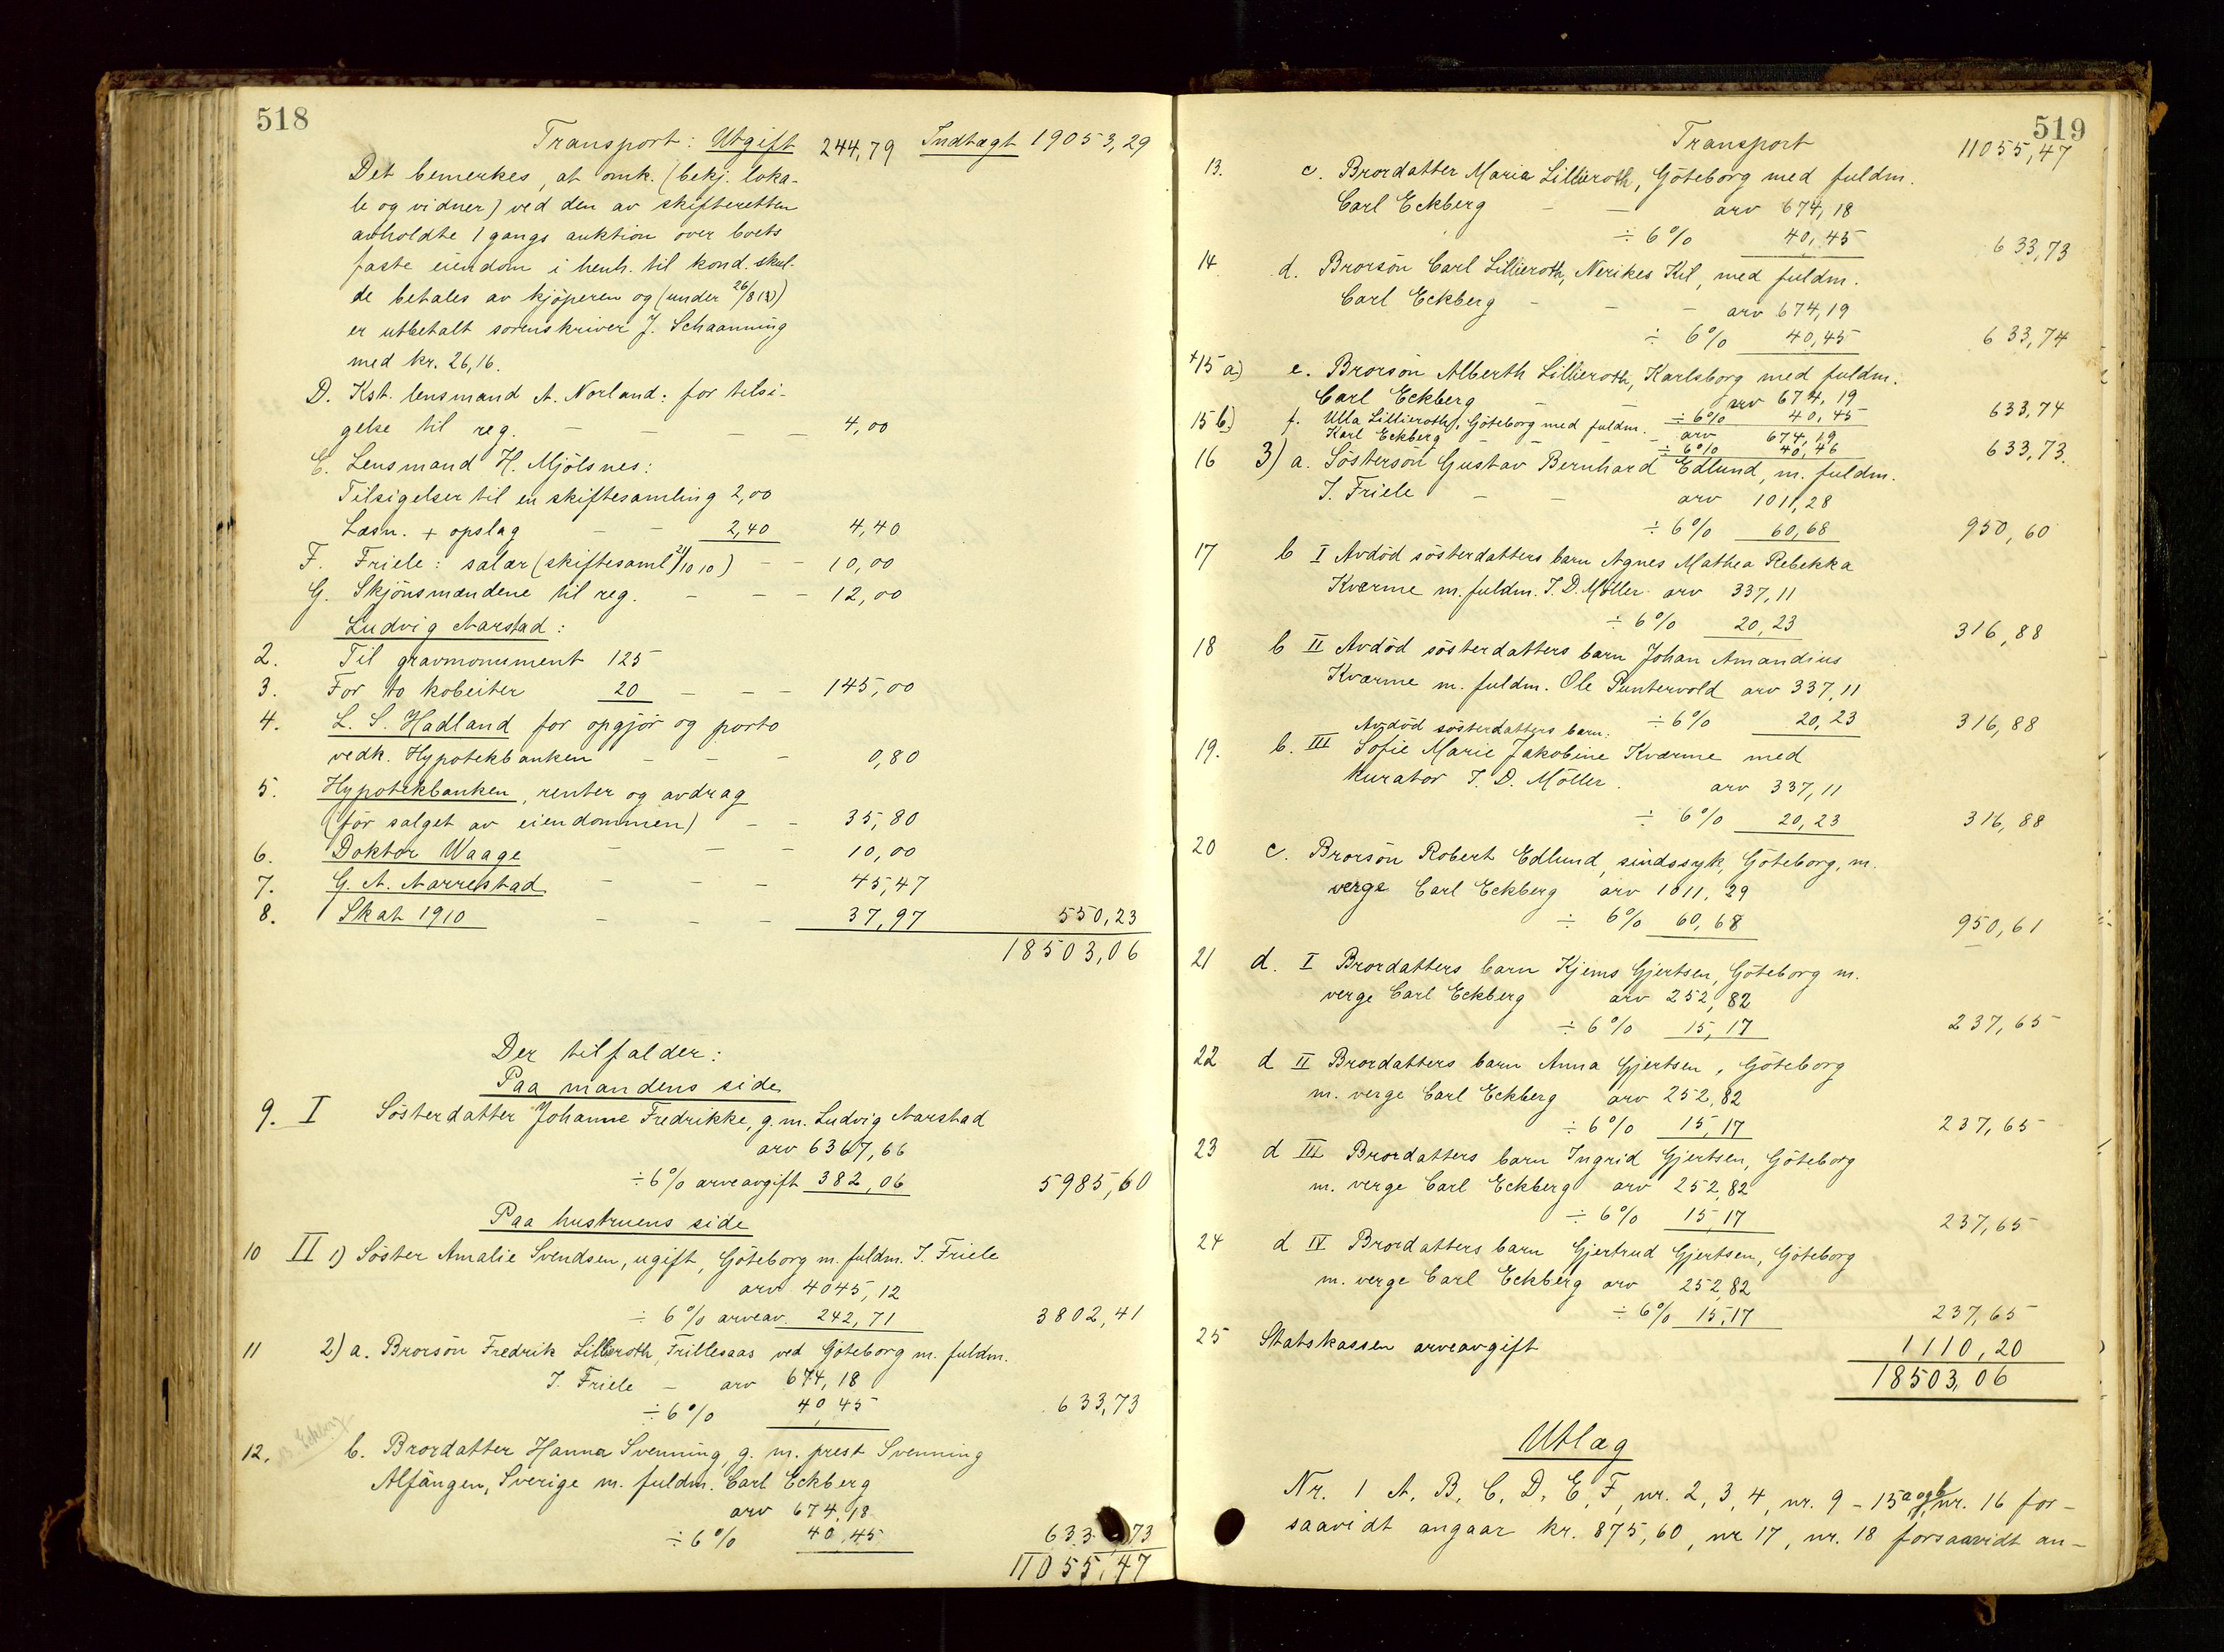 518
Transport: Utgift 244,79 Indtægt 19053,29
Det bemerkes, at omk. (bekj. loka-
le og vidner) ved den av skifteretten
avholdte 1 gangs auktion over boets
faste eiendom i henh. til kond. skul-
de betales av kjöperen og (under 26/8 13)
er utbetalt sorenskriver J. Schaanning
med kr. 26,16.
D. Kst. lensmand A. Norland: for tilsi-
gelse til reg. — — — — 4,00
E. Lensmand H. Mjölsnes:
Tilsigelser til en skiftesamling 2,00
Læsn. + opslag — — 2,40 4,40
F. Friele: salær (skiftesaml 21/10 10) — — 10,00
G. Skjönsmændene til reg. — — — 12,00
Ludvig Aarstad:
2. Til gravmonument 125
3. For to kobeiter 20 — — — 145,00
4. L. S. Hadland for opgjör og porto
vedk. Hypotekbanken — — — 0,80
5. Hypotekbanken, renter og avdrag
(för salget av eiendommen) — — 35,80
6. Doktor Waage — — — 10,00
7. G. A. Aarrestad — — — 45,47
8. Skat 1910 — — — 37,97 550,23
18503,06
Der tilfalder:
Paa mandens side
9. I Sösterdatter Johanne Fredrikke, g.m. Ludvig Aarstad
arv 6367,66
÷ 6% arveavgift 382,06 5985,60
Paa hustruens side
10 II 1) Söster Amalie Svendsen, ugift, Göteborg m. fuldm. J. Friele
arv 4045,12
÷ 6% arveav. 242,71 3802,41
11 2) a. Brorsön Fredrik Lillieroth, Frillesaas ved Göteborg m. fuldm.
J. Friele — arv 674,18
÷ 6% 40,45 633,73
12. b. Brordatter Hanna Svenning, g. m. prest Svenning
Alfängen, Sverige m. fuldm. Carl Eckberg
arv 674,18
÷ 6% 40,45 633,73
11055,47
519
Transport 11055,47
13. c. Brordatter Maria Lillieroth, Göteborg med fuldm.
Carl Eckberg — — arv 674,18
÷ 6% 40,45 633,73
14 d. Brorsön Carl Lillieroth, Nerikes Kil, med fuldm.
Carl Eckberg — — — arv 674,19
÷ 6% 40,45 633,74
+15 a) e. Brorsön Alberth Lillieroth, Karlsborg med fuldm.
Carl Eckberg — — arv 674,19
÷ 6% 40,45 633,74
15 b.) f. Ulla Lillieroth, Göteborg med fuldm.
Karl Eckberg — — — — arv 674,19
÷ 6% 40,46 633,73.
16 3) a. Söstersön Gustav Bernhard Edlund, m. fuldm.
J. Friele — — arv 1011,28
÷ 6% 60,68 950,60
17 b I Avdöd sösterdatters barn Agnes Mathea Rebekka
Kværme m. fuldm. J. D. Möller arv 337,11
÷ 6% 20,23 316,88
18 b II Avdöd sösterdatters barn Johan Amandius
Kværme m. fuldm. Ole Puntervold arv 337,11
÷ 6% 20,23 316,88
Avdöd sösterdatters barn:
19. b. III Sofie Marie Jakobine Kværme med
kurator J. D. Möller. arv 337,11
÷ 6% 20,23 316,88
20 c. Brorsön Robert Edlund, sindssyk, Göteborg, m.
verge Carl Eckberg arv 1011,29
÷ 6% 60,68 950,61
21 d. I Brordatters barn Kjems Gjertsen, Göteborg m.
verge Carl Eckberg arv 252,82
÷ 6% 15,17 237,65
22 d II Brordatters barn Anna Gjertsen, Göteborg
m. verge Carl Eckberg arv 252,82
÷ 6% 15,17 237,65
23 d III Brordatters barn Ingrid Gjertsen, Göteborg
m. verge Carl Eckberg arv 252,82
÷ 6% 15,17 237,65
24 d IV Brordatters barn Gjertrud Gjertsen, Göteborg
m. verge Carl Eckberg arv 252,82
÷ 6% 15,17 237,65
25 Statskassen arveavgift 1110,20
18503,06
Utlæg
Nr. 1 A, B, C, D, E, F, nr. 2, 3, 4, nr. 9 - 15 a og b, nr. 16 for-
saavidt angaar kr. 875,60, nr 17, nr. 18 forsaavidt an-